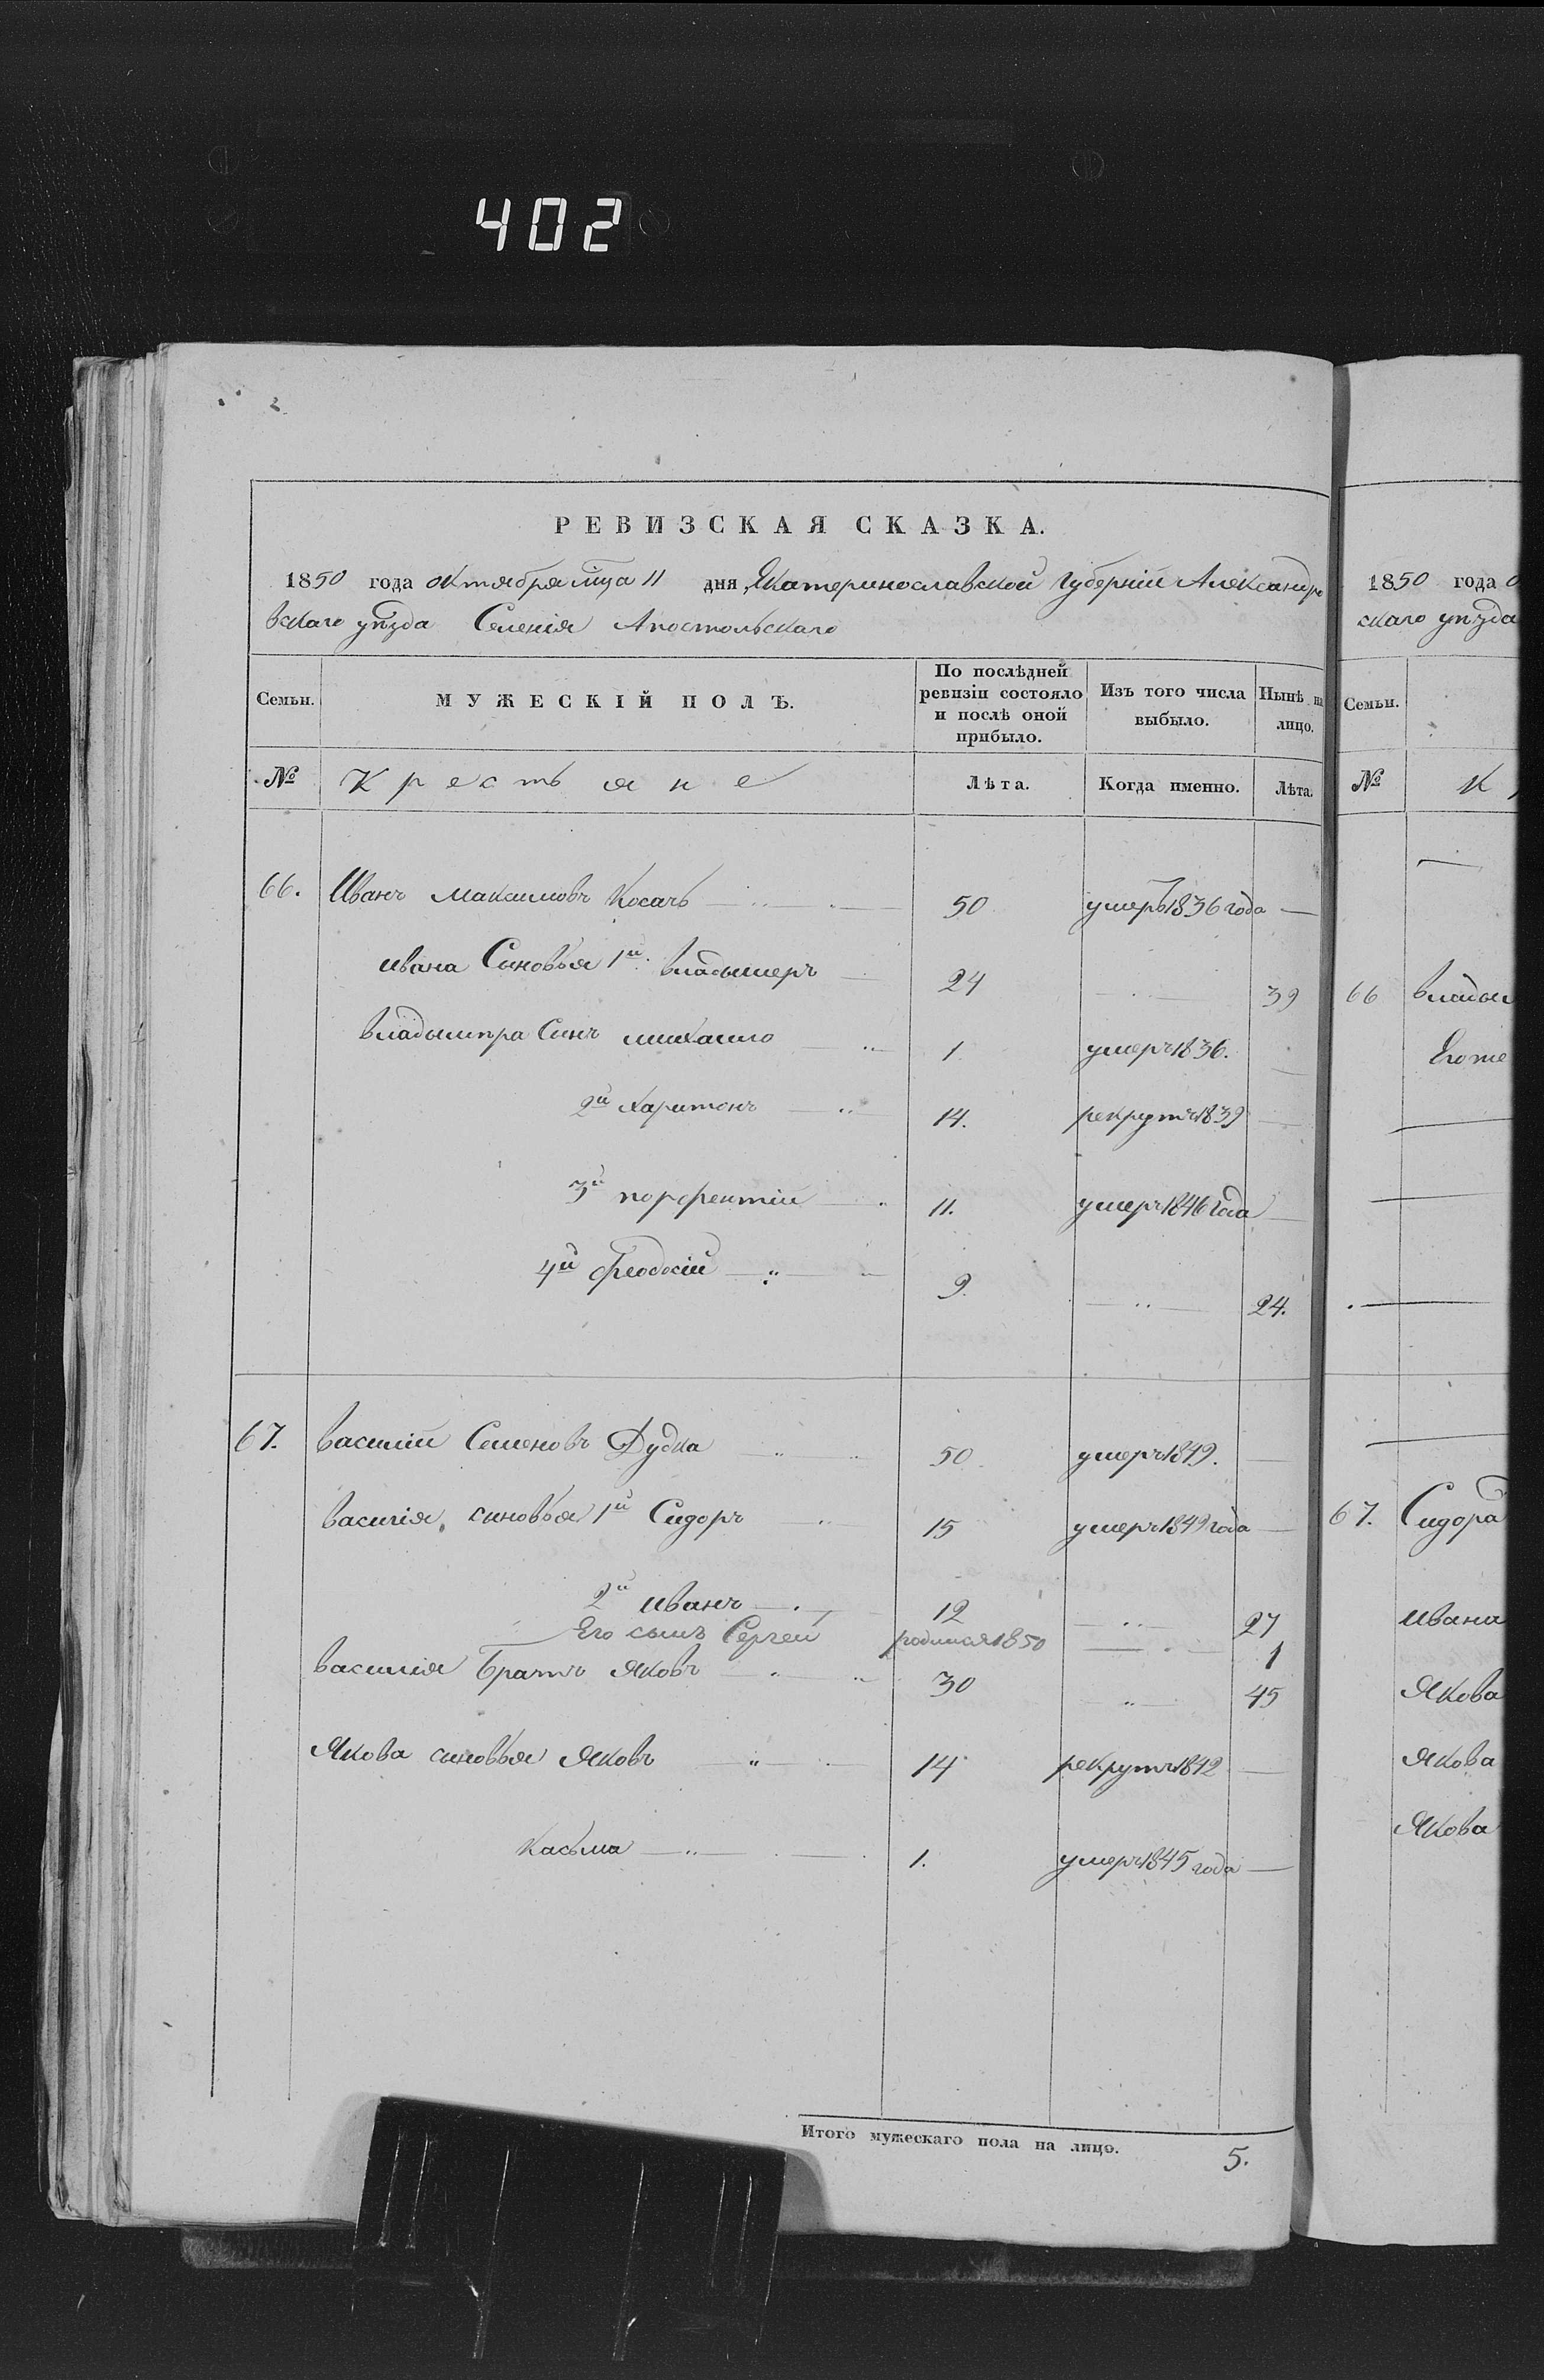 402
РЕВИЗСКАЯ СКАЗКА.
1850 года октября мца 11 дня, Екатеринославской Губерніи Александро
вскаго уѣзда Селенія Апостольскаго
Семьи. МУЖЕСКІЙ ПОЛЪ. По послѣдней ревизіи состояло и послѣ оной прибыло. Изъ того числа выбыло. Нынѣ на лицо.
№ Крестьяне Лѣта. Когда именно. Лѣта.
66. Иванъ Максимовъ Косачь 50 умеръ 1836 года
ивана Сыновья 1й владымеръ 24 39
владымира Сынъ михаило 1 умеръ 1836.
2й Харитонъ 14. рекрутъ 1839
3й порфентій 11. умеръ 1846 года
4й феодосій 9. 24.
67. василій Семеновъ Дудка 50 умеръ 1849.
василія сыновья 1й Сидоръ 15 умеръ 1849 года
2й иванъ 12 27
Его сынъ Сергей родился 1850 1
василія Братъ яковъ 30 45
Якова сыновья яковъ 14 рекрутъ 1842
касьма 1. умеръ 1845 года
Итого мужескаго пола на лицо. 5.
1850 года о
скаго уѣзда
Семьи.
№ К
66 владым
Его же
67. Сидора
ивана
Якова
якова
Якова